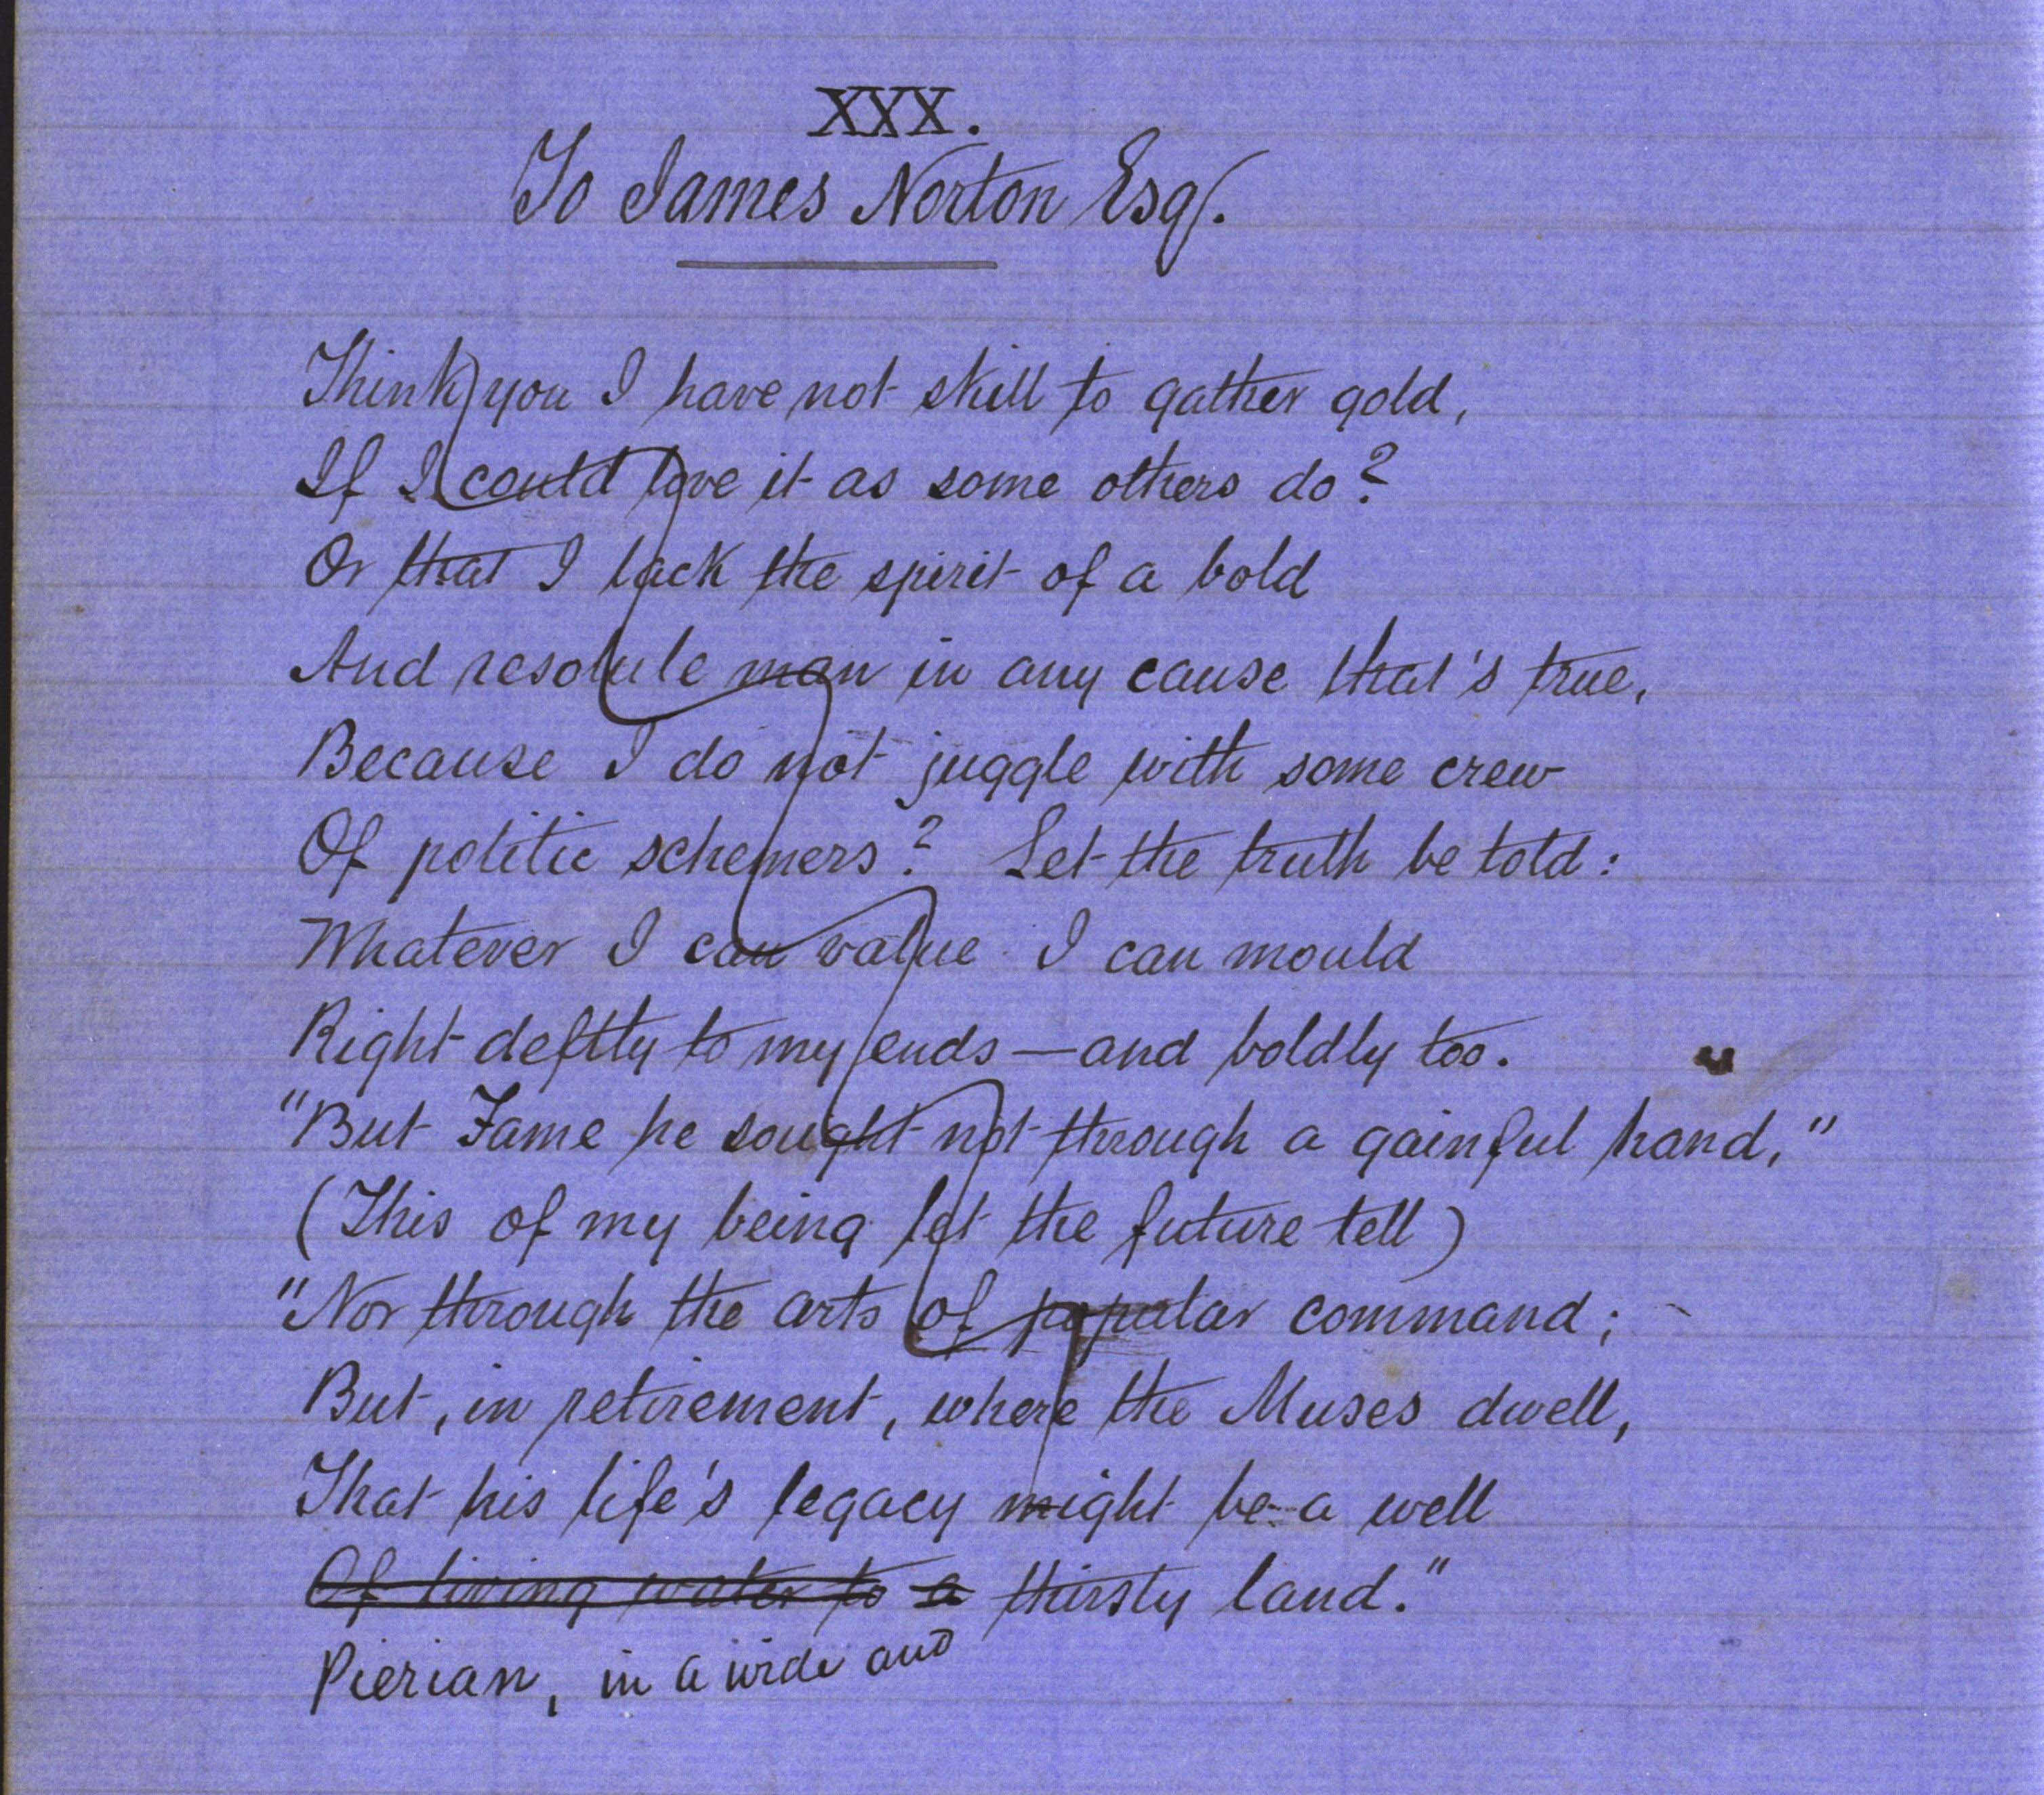 XXX.
To James Norton Esqr.
Think you I have not skill to gather gold,
If I could love it as some others do?
Or that I lack the spirit of a bold
And resolute man in any cause that's true,
Because I do not juggle with some crew
Of politic schemers? Let the truth be told:
Whatever I can value I can mould
Right deftly to my ends—and boldly too.
"But Fame he sought not through a gainful hand,"
(This of my being let the future tell)
"Nor through the arts of popular command;
But, in retirement, where the Muses dwell,
That his life's legacy might be a well
Of living water to a thirsty land."
Pierian, in a wide and